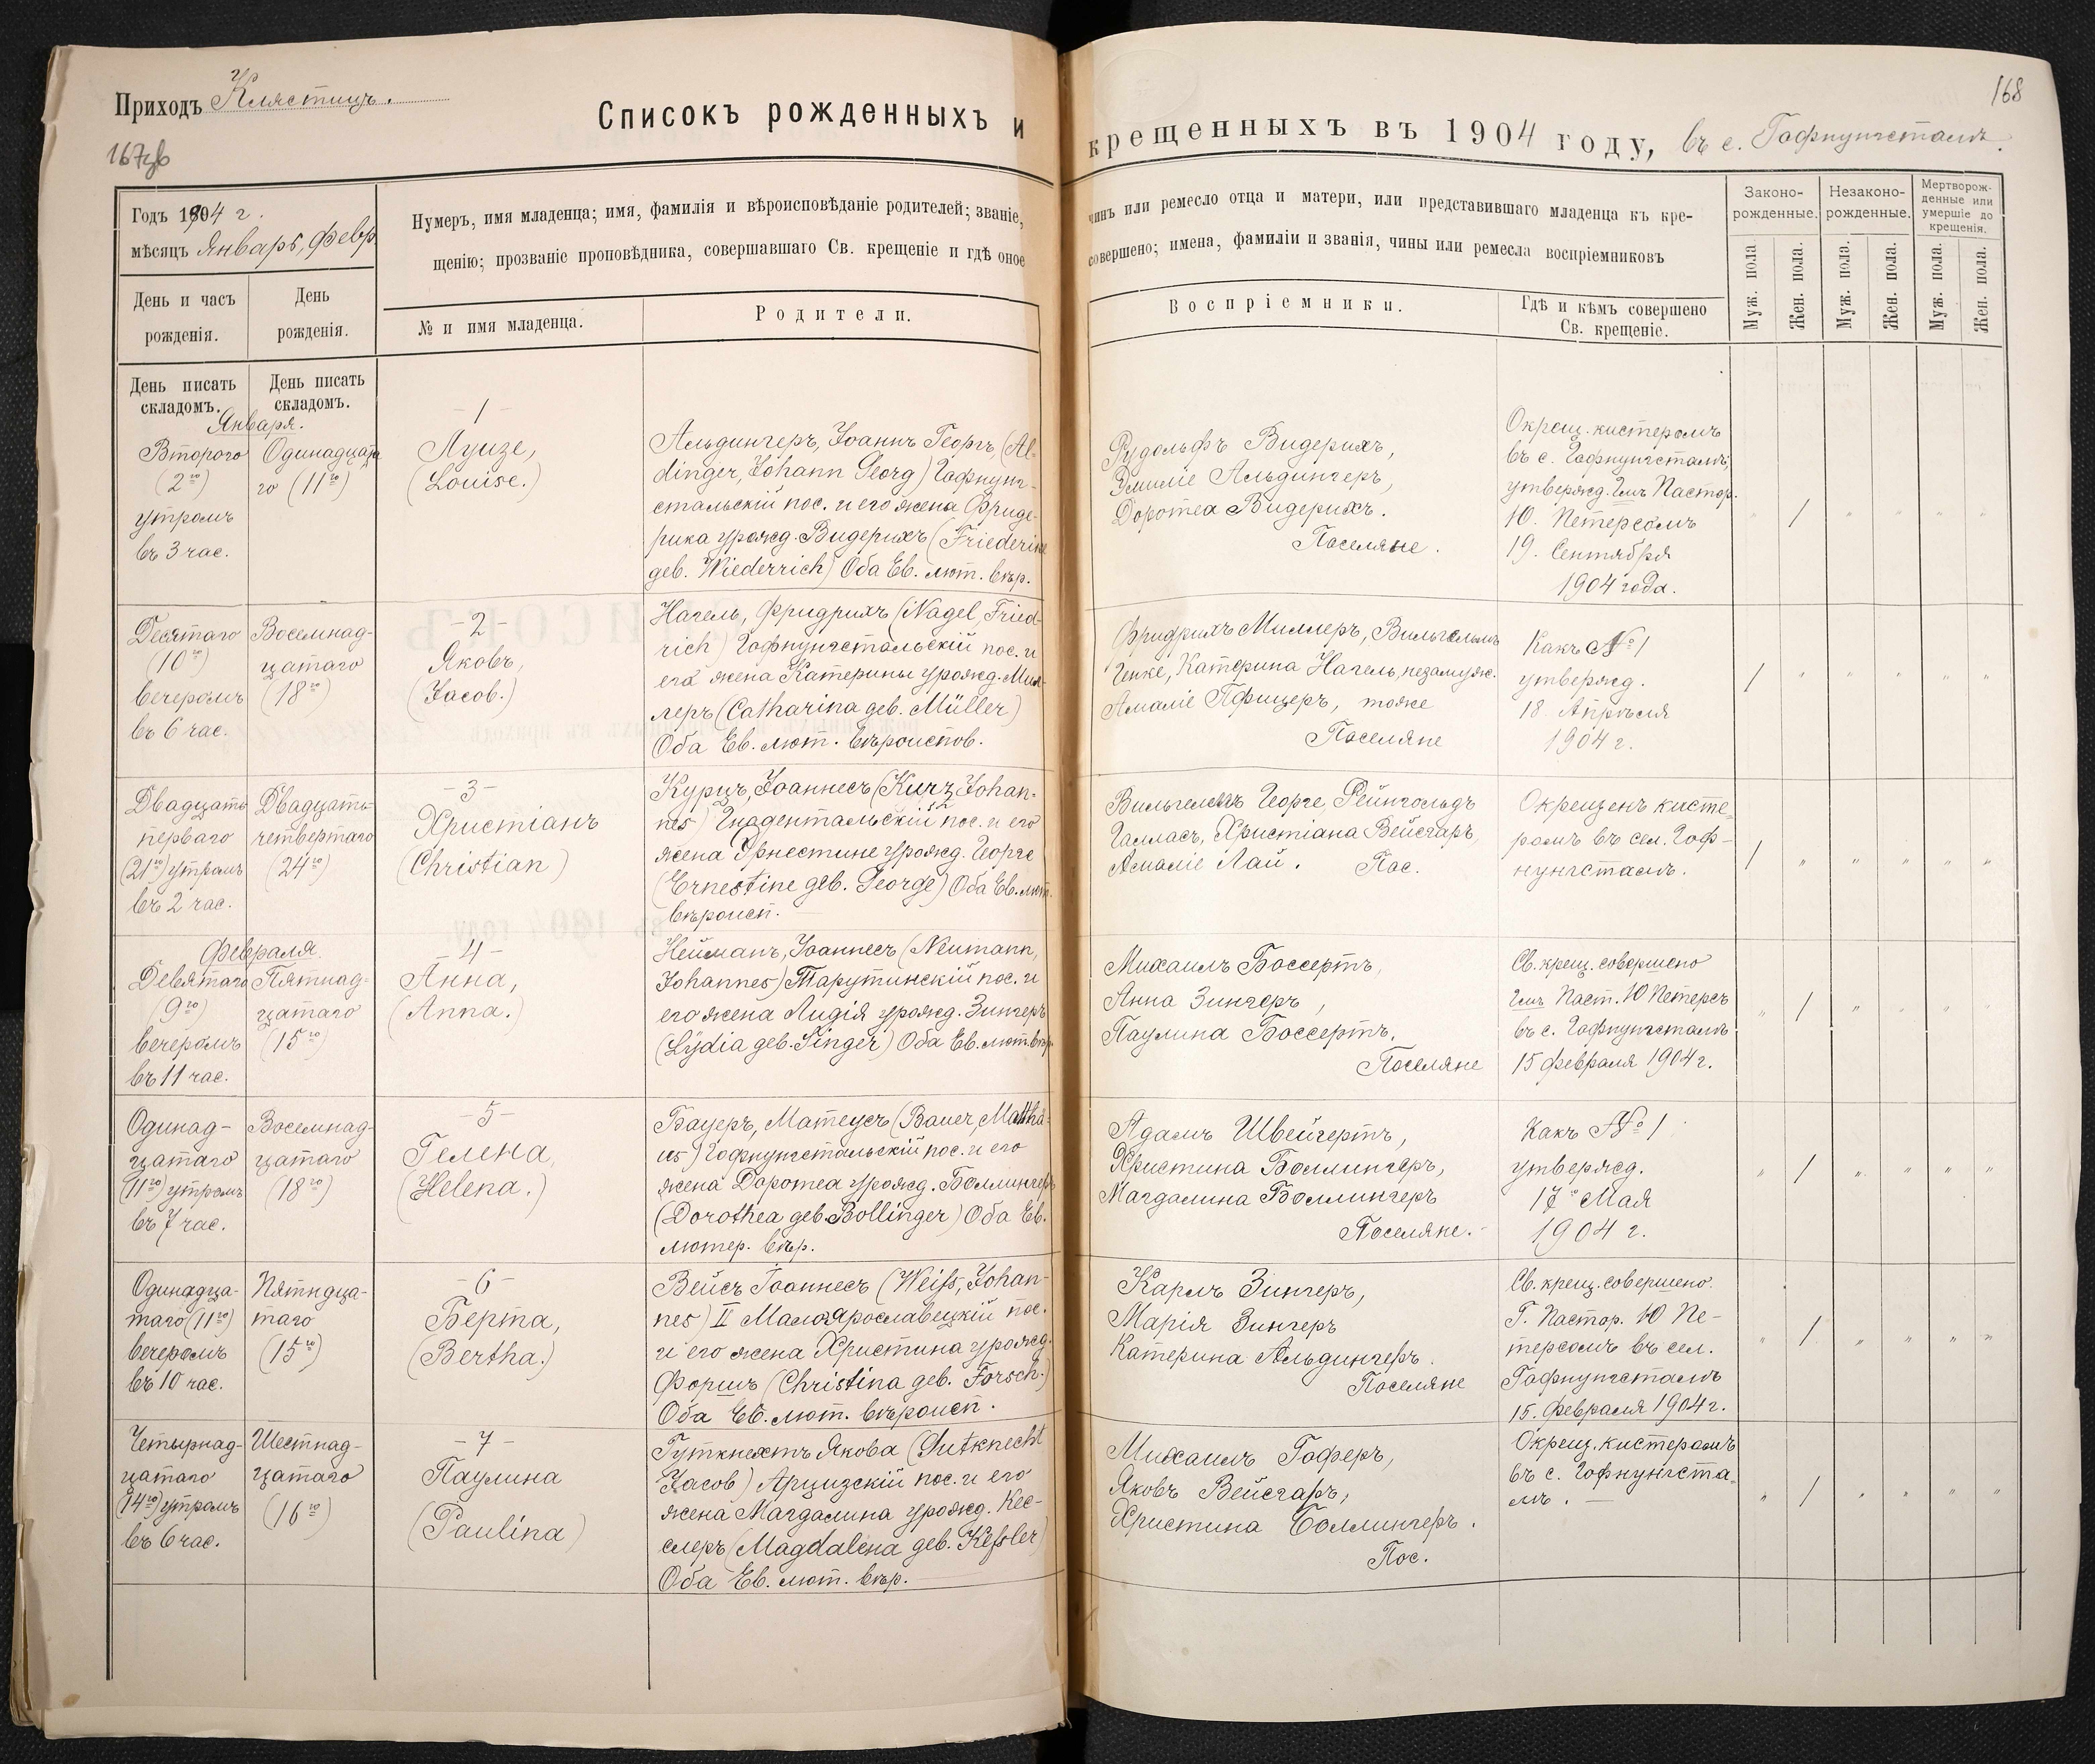 Приходъ Клястицъ.
167об
Списокъ рожденныхъ и
крещенныхъ въ 1904 году, въ с. Гофнунгсталѣ.
168
Годъ 1904 г.
мѣсяцъ Январь, Февр.
Нумеръ, имя младенца; имя, фамилія и вѣроисповѣданіе родителей; званіе,
щенію; прозваніе проповѣдника, совершавшаго Св. крещеніе и гдѣ оное
чинъ или ремесло отца и матери, или представившаго младенца къ кре-
совершено; имена, фамиліи и званія, чины или ремесла воспріемниковъ
Законо-
рожденные.
Незаконо-
рожденные.
Мертворож-
денные или
умершіе до
крещенія.
День и часъ
рожденія.
День
рожденія.
№ и имя младенца.
Родители.
Воспріемники.
Гдѣ и кѣмъ совершено
Св. крещеніе.
Муж. пола.
Жен. пола.
Муж. пола.
Жен. пола.
Муж. пола.
Жен. пола.
День писать
складомъ.
День писать
складомъ.
Января.
Второго
(2го)
утромъ
въ 3 час.
Одинадцата
го (11го)
-1-
Луизе,
(Louise.)
Альдингеръ, Іоаннъ Георгъ, (Al-
dinger, Johann Georg) Гофнунг-
стальскій пос. и его жена Фриде-
рика урожд. Видерихъ (Friederike
geb. Wiederrich) Оба Ев. лют. вѣр.
Рудольфъ Видерихъ,
Эмиліе Альдингеръ,
Доротеа Видерихъ.
Поселяне.
Окрещ. кистеромъ
въ с. Гофнунгсталѣ,
утвержд. Гмъ Пастор.
Ю. Петерсомъ
19. Сентября
1904 года.
" / " " " "
Десятаго
(10го)
вечеромъ
въ 6 час.
Восемнад-
цатаго
(18го)
-2-
Яковъ,
(Jacob.)
Нагель, Фридрихъ (Nagel, Fried-
rich) Гофнунгстальскій пос. и
его жена Катерины урожд. Мил-
леръ (Catharina geb. Müller)
Оба Ев. лют. вѣроиспов.
Фридрихъ Миллеръ, Вильгельмъ
Генке, Катерина Нагель, незамуж.
Амаліе Пфицеръ, тоже
Поселяне
Какъ № 1
утвержд.
18 Апрѣля
1904 г.
/ " " " " "
Двадцать
перваго
(21го) утромъ
въ 2 час.
Двадцать-
четвертаго
(24го)
-3-
Христіанъ
(Christian)
Курцъ, Іоаннесъ (Kurz, Johan-
nes) Гнадентальскій пос. и его
жена Эрнестине урожд. Георге
(Ernestine geb. George) Оба Ев. лют.
вѣроисп.
Вильгельмъ Георге, Рейнгольдъ
Галласъ, Христіана Вейсгаръ,
Амаліе Лай. Пос.
Окрещенъ кисте-
ромъ въ сел. Гоф-
нунгсталѣ.
/ " " " " "
Февраля.
Девятаго
(9го)
вечеромъ
въ 11 час.
Пятнад-
цатаго
(15го)
4-
Анна,
(Anna.)
Нейманъ, Іоаннесъ (Neumann,
Johannes) Тарутинскій пос. и
его жена Лидія урожд. Зингеръ
(Lydia geb. Singer) Оба Ев. лют. вѣр.
Михаилъ Боссертъ,
Анна Зингеръ,
Паулина Боссертъ.
Поселяне
Св. крещ. совершено
Гмъ Паст. Ю Петерсъ
въ с. Гофнунгсталѣ
15 Февраля 1904 г.
" / " " "
Одинад-
цатаго
(11го) утромъ
въ 7 час.
Восемнад-
цатаго
(18го)
-5-
Гелена,
(Helena.)
Бауеръ, Матеусъ (Bauer, Matthä-
us) Гофнунгстальскій пос. и его
жена Доротеа урожд. Боллингеръ
(Dorothea geb. Bollinger) Оба Ев.
лютер. вѣр.
Адамъ Швейгертъ,
Христина Боллингеръ,
Магдалина Боллингеръ
Поселяне.
Какъ № 1
утвержд.
17 Мая
1904 г.
" / " " " "
Одинадца-
таго (11го)
вечеромъ
въ 10 час.
Пятндца-
таго
(15го)
-6-
Берта,
(Bertha.)
Вейсъ Іоаннесъ (Weiſs, Johan-
nes) II Малоярославецкій пос.
и его жена Христина урожд.
Форшъ (Christina geb. Forsch.)
Оба Ев. лют. вѣроисп.
Карлъ Зингеръ,
Марія Зингеръ
Катерина Альдингеръ.
Поселяне
Св. крещ. совершено.
Г. Пастор. Ю Пе-
терсомъ въ сел.
Гофнунгсталѣ
15. Февраля 1904 г.
" / " " " "
Четырнад-
цатаго
(14го) утромъ
въ 6 час.
Шестнад-
цатаго
(16го)
-7-
Паулина
(Paulina)
Гуткнехтъ Якова (Gutknecht
Jacob) Арцизскій пос. и его
жена Магдалина урожд. Кес-
слеръ (Magdalena geb. Keſsler)
Оба Ев. лют. вѣр.
Михаилъ Гоферъ,
Яковъ Вейсгаръ,
Христина Боллингеръ.
Пос.
Окрещ. кистеромъ
въ с. Гофнунгста-
лѣ.
" / " " " "